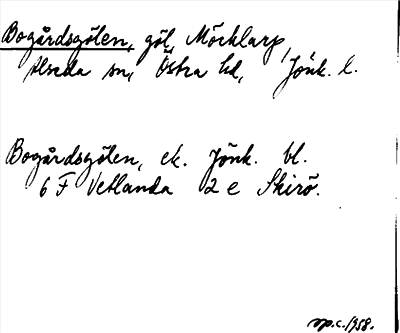 Bogårdsgölen, göl, Möcklarp,
Alseda sn, Östra hd, Jönk. l.
Bogårdsgölen, ek. Jönk. bl.
6 F Vetlanda 2 e Skirö.
sp.c. 1958.